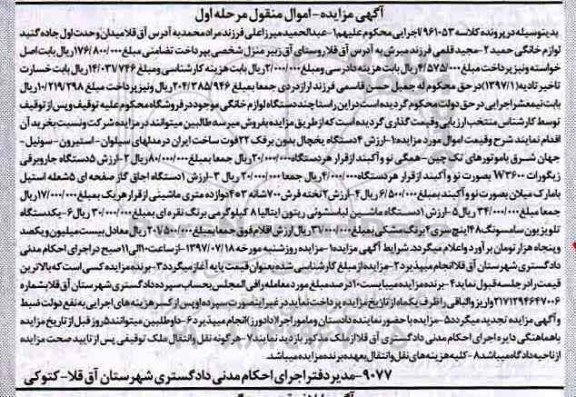 آگهی مزایده- اموال منقول مرحله اول
بدینوسیله در پرونده کلاسه ۹۶۱۰۵۳ اجرایی محکوم علیهم ۱- عبدالحمید میرزاعلی فرزند مراد محمد به آدرس آق قلا میدان وحدت اول جاده گنبد
لوازم خانگی حمید ۲- مجید قلمی فرزند میرش به آدرس آق قلا روستای آق زبیر منزل شخصی بپرداخت تضامنی مبلغ ۱۷۶/۸۰۰/۰۰۰ ریال بابت اصل
خواسته و نیز پرداخت مبلغ ۴/۵۷۵/۰۰۰ ریال بابت هزینه دادرسی و مبلغ ۲/۰۰۰/۰۰۰ ریال بابت هزینه کارشناسی و مبلغ ۱۴/۰۳۷/۷۴۶ ریال بابت خسارت
تاخیر تادیه (۱۳۹۷/۱) در حق محکوم له جمیل حسن قاسمی فرزند ارازدردی جمعا بمبلغ ۲۰۴/۳۸۵/۹۴۶ ریال و نیز پرداخت مبلغ ۱۰/۲۱۹/۲۹۸ ریال
بابت نیمعشر اجرایی در حق دولت محکوم گردیده است در این راستا چند دستگاه لوازم خانگی موجود در فروشگاه محکوم علیه توقیف و پس از توقیف
توسط کارشناس منتخب ارزیابی و قیمت گذاری گردیده است که از طریق مزایده بفروش میرسد طالبین میتوانند در مزایده شرکت و نسبت بخرید آن
اقدام نمایند شرح و قیمت اموال مورد مزایده: ۱- ارزش ۴ دستگاه یخچال بدون برفک ۲۲ فوت ساخت ایران در مدلهای سیلوان - استیرون - سونیل -
جهان شرق باموتورهای تک چین - همگی نو و آکبند از قرار هر دستگاه ۲۰/۰۰۰/۰۰۰ ریال جمعا بمبلغ ۸۰/۰۰۰/۰۰۰ ریال ۲- ارزش ۵ دستگاه جاروبرقی
زیگورات W۳۶۰۰ بصورت نو و آکبند از قرار هر دستگاه ۴/۰۰۰/۰۰۰ ریال جمعا ۲۰/۰۰۰/۰۰۰ ریال ۳- ارزش ۱ دستگاه اجاق گاز صفحه ای ۵ شعله استیل
بامارک میلان بصورت نو و آکبند بمبلغ ۶/۵۰۰/۰۰۰ ریال ۴- ارزش ۲ تخته فرش ۷۰۰ شانه ۳*۴ دوازده متری ماشینی از قرار هر یک بمبلغ ۱۷/۰۰۰/۰۰۰ ریال
جمعا مبلغ ۳۴/۰۰۰/۰۰۰ ریال ۵- ارزش ۱ دستگاه ماشین لباسشوئی ریتون ایتالیا ۸ کیلوگرمی برنگ نقره ای بمبلغ ۳۰/۰۰۰/۰۰۰ ریال ۶- یکدستگاه
تلویزیون سامسونگ ۴۸ اینچ سری ۴ برنگ مشکی بمبلغ ۳۷/۰۰۰/۰۰۰ ریال ارزش اقلام فوق جمعا بمبلغ ۲۰۷/۵۰۰/۰۰۰ ریال معادل بیست میلیون و یکصد
و پنجاه هزار تومان برآورد و اعلام میگردد. شرایط آگهی مزایده ۱- مزایده روز شنبه مورخه ۱۳۹۷/۰۷/۱۸ از ساعت ۱۰ الی ۱۱ صبح در اجرای احکام مدنی
دادگستری شهرستان آق قلا انجام میپذیرد ۲- مزایده از مبلغ کارشناسی شده بعنوان قیمت پایه آغاز میگردد ۳- برنده مزایده کسی است که بالاترین
قیمت را در جلسه قبول نماید ۴- برنده مزایده میبایست ۱۰ درصد مبلغ مورد معامله را فی المجلس بحساب سپرده دادگستری شهرستان آق قلا بشماره
۲۱۷۱۲۹۴۶۴۷۰۰۶ واریز و الباقی را ظرف یکماه از تاریخ مزایده پرداخت نماید در غیر اینصورت سپرده او پس از کسر هزینه های اجرایی به نفع دولت ضبط
و آگهی مزایده تجدید میگردد ۵- مزایده با حضور نماینده دادستان و مامور اجرا (دادورز) انجام میپذیرد ۶- داوطلبین میتوانند ۵ روز قبل از تاریخ مزایده
باهماهنگی دایره اجرای احکام مدنی دادگستری آق قلا از ملک مذکور بازدید نمایند ۷- هر گونه نقل و انتقال ملک توقیفی پس از تایید صحت مزایده
از ناحیه دادگاه میباشد ۸- کلیه هزینه های نقل و انتقال بعهده برنده مزایده میباشد.
۹۰۷۷- مدیر دفتر اجرای احکام مدنی دادگستری شهرستان آق قلا- کتوکی